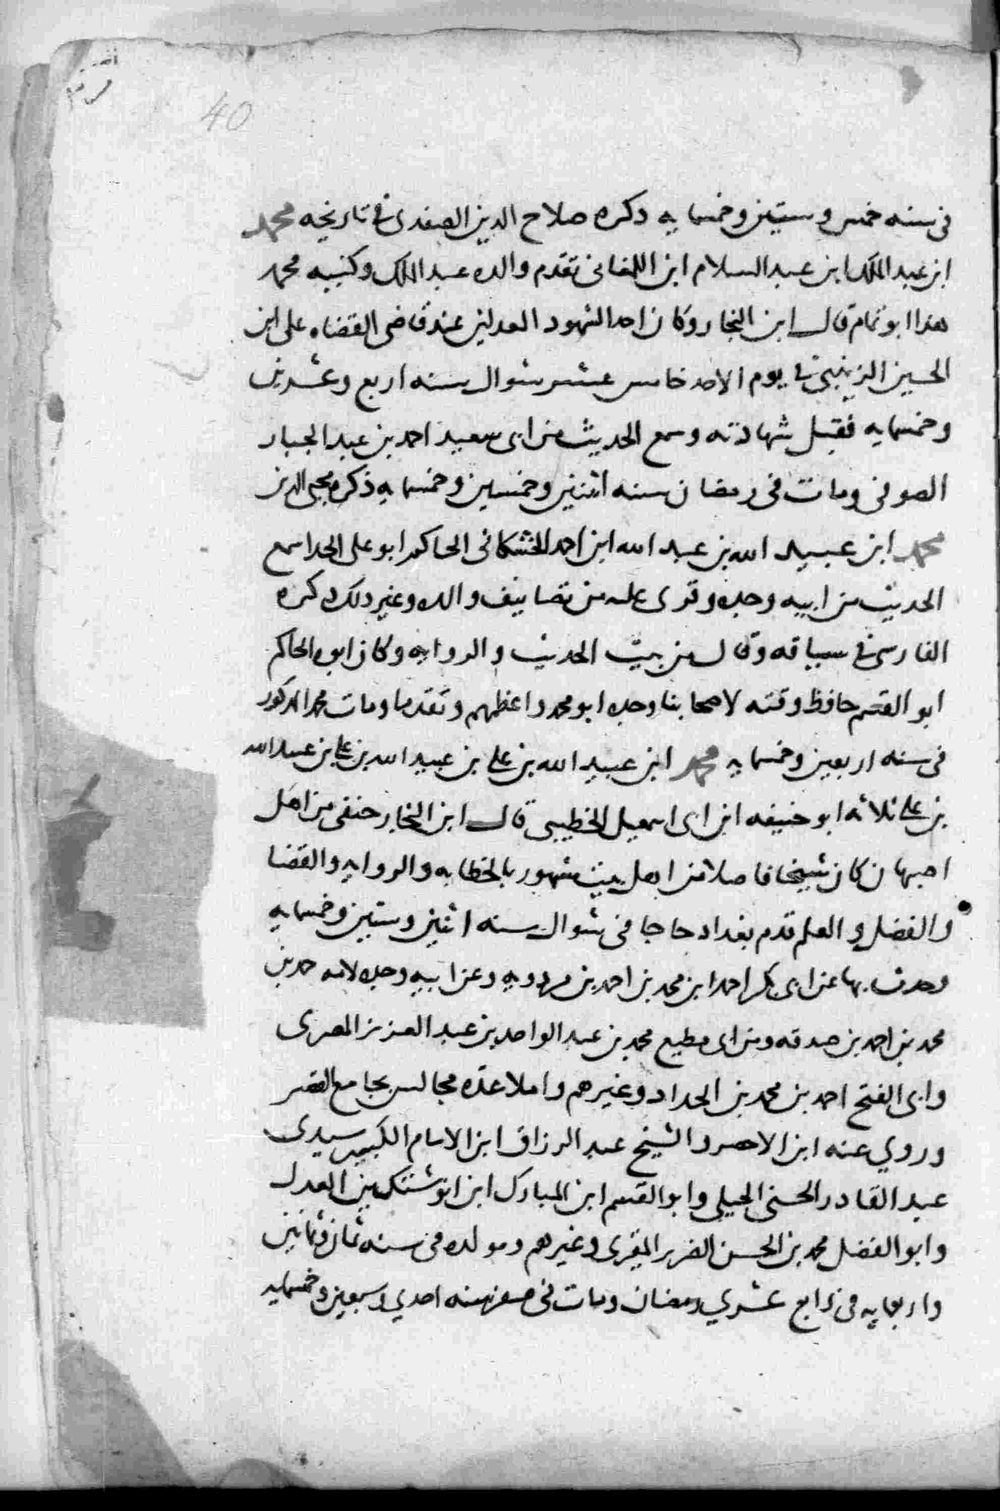 40
في سنه خمس وستين وخمسمايه ذكره صلاح الدين الصفدي في تاريخه محمد
ابن عبد الملك ابن عبد السلام ابن اللمغاني تقدم والده عبد الملك وكنيته محمد
هذا ابو تمام قال ابن النجار وكان احد الشهود المعدلين عند قاضي القضاه على ابن
الحسين الزينبي في يوم الاحد خامس عشر شوال سنه اربع وعشرين
وخمسمايه فقبل شهادته وسمع الحديث من ابي سعيد احمد بن عبد الجبار
الصوفي ومات في رمضان سنه اثنين وخمسين وخمسمايه ذكره محيي الدين
محمد ابن عبيد الله بن عبد الله ابن احمد الحشكاني الحاكم ابو علي الحدا سمع
الحديث من ابيه وجده وقرى عليه من تصانيف والده وغير ذلك ذكره
الفارسي في سياقه وقال من بيت الحديث والروايه وكان ابوه الحاكم
ابو القسم حافظ وقته لاصحابنا وجده ابو محمد واعظهم وتقدما ومات محمد المذكور
في سنه اربعين وخمسمايه محمد ابن عبيد الله بن علي بن عبيد الله بن علي بن عبيد الله
بن علي ثلاثه ابو حنيفه ابن ابي اسمعيل الخطيبي قال ابن النجار حنفي من اهل
اصبهان كان شيخا فاضلا من اهل بيت مشهور بالخطابه والروايه والقضا
والفضل والعلم قدم بغداد حاجا في شوال سنه اثنين وستين وخمسمايه
وحدث بها عن ابي بكر احمد ابن محمد بن احمد بن مردويه وعن ابيه وجده لامه حمد بن
محمد بن احمد بن صدقه ومن ابي مطيع محمد بن عبد الواحد بن عبد العزيز المصري
وابي الفتح احمد بن محمد بن الحداد وغيرهم واملا عده مجالس بجامع القصر
وروي عنه ابن الاخضر والشيخ عبد الرزاق ابن الامام الكبير سيدي
عبد القادر الحسني الجيلي وابو القسم ابن المبارك ابن انوشتكين العدل
وابو الفضل محمد بن الحسن الضرير المقري وغيرهم ومولده في سنه ثمان وثمانين
واربعمايه في رابع عشري رمضان ومات في صفر سنه احدي وسبعين وخمسمايه